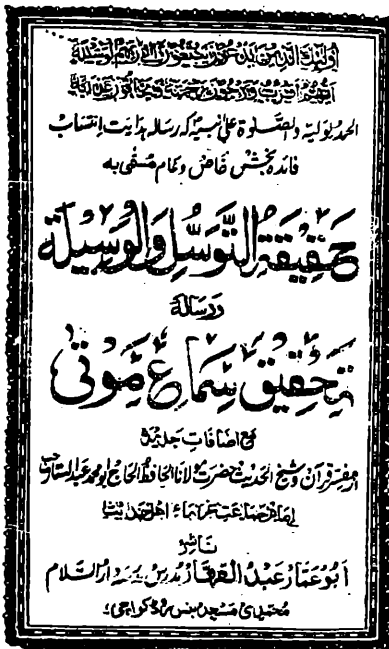 اُولٰٓئِكَ الَّذِيْنَ يَدْعُوْنَ يَبْتَغُوْنَ اِلٰى رَبِّهِمُ الْوَسِيْلَةَ
اَيُّهُمْ اَقْرَبُ وَيَرْجُوْنَ رَحْمَتَهٗ وَيَخَافُوْنَ عَذَابَهٗ
الحمد لولیہ والصلوٰة علیٰ نبیہ کہ رسالہ ہدایت انتساب
فائدہ بخش خاص و عام مسمّٰی بہ
حَقِيْقَةُ التَّوَسُّلِ وَالْوَسِيْلَة
ورسالہ
تحقیق سماع موتٰی
مع اضافات جدیدہ
از مفسر قرآن و شیخ الحدیث حضرت مولانا الحافظ الحاج ابو محمد عبدالستار
امام جماعت غرباء اہلحدیث
ناشر
ابو عمار عبد الغفار مدرس مدرسہ دارالسلام
محمدی مسجد بنس روڈ کراچی